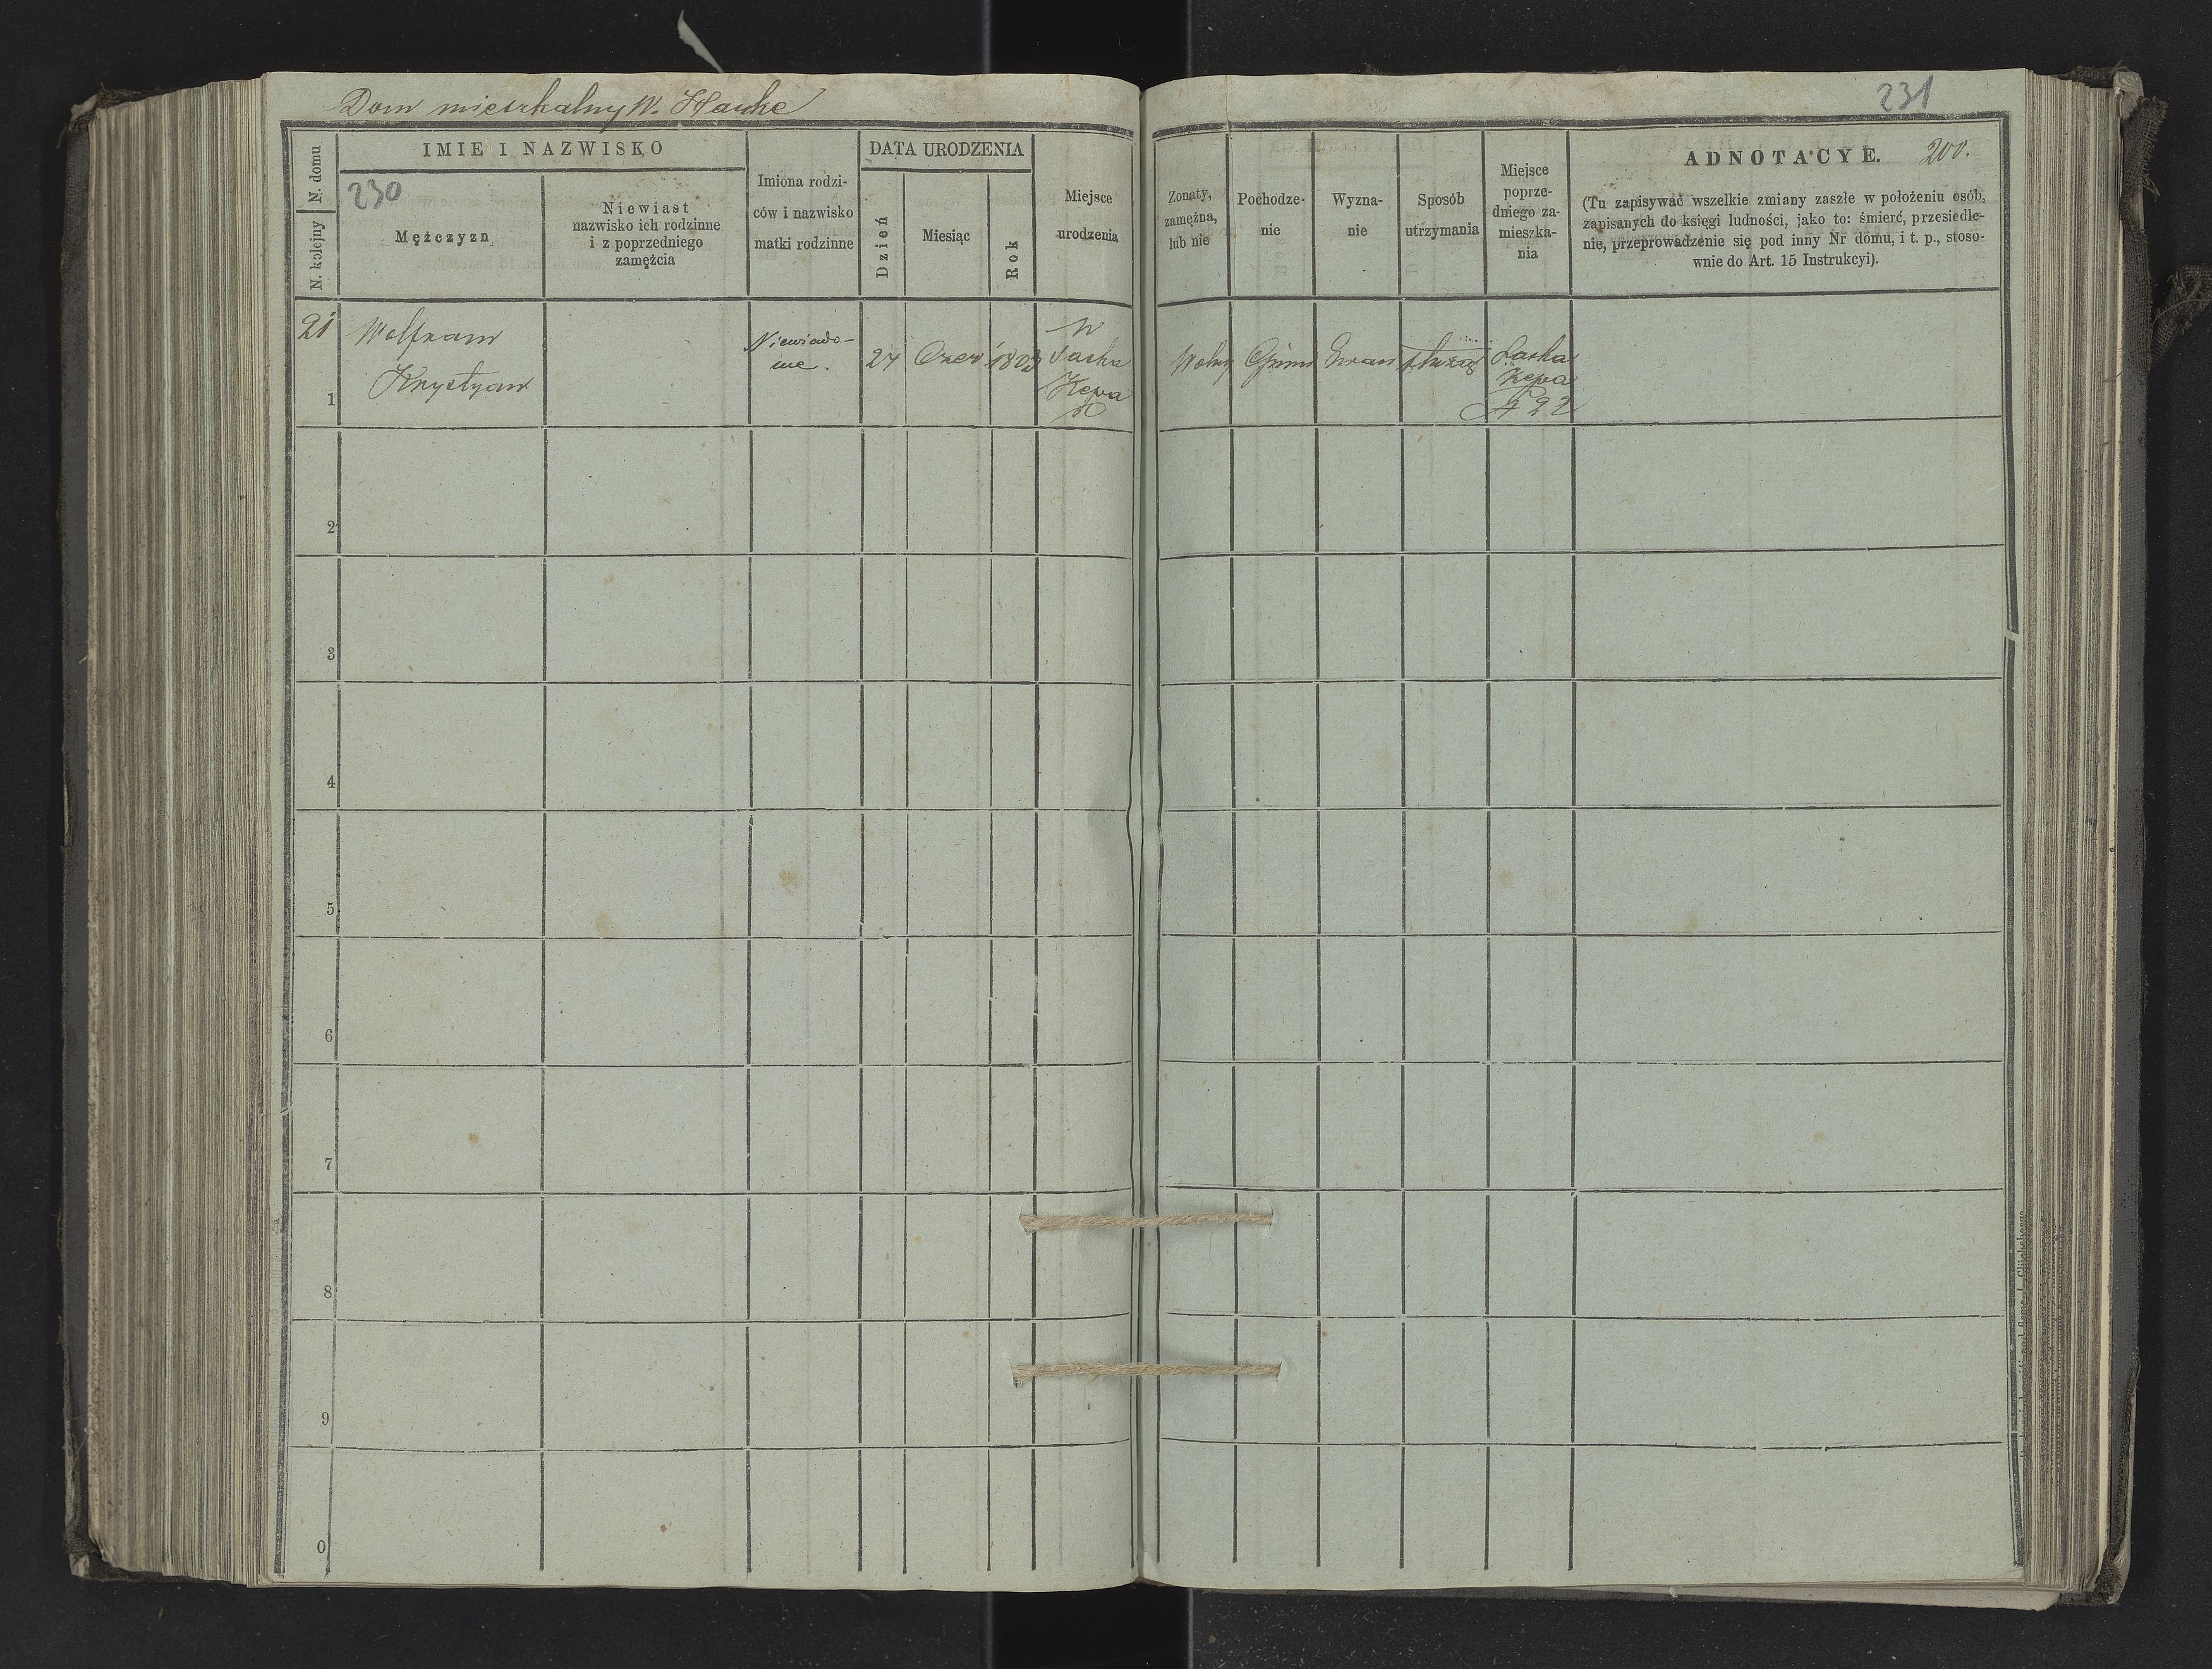 Dom mieszkalny W. Hauke
231
N. domu
N. kolejny
IMIE I NAZWISKO
230
Mężczyzn
Niewiast
nazwisko ich rodzinne
i z poprzedniego
zamęścia
Imiona rodzi-
ców i nazwisko
matki rodzinne
DATA URODZENIA
Dzień
Miesiąc
Rok
Miejsce
urodzenia
Żonaty,
zamężna,
lub nie
Pochodze-
nie
Wyzna-
nie
Sposób
utrzymania
Miejsce
poprze-
dniego za-
mieszka-
nia
ADNOTACYE.
200.
(Tu zapisywać wszelkie zmiany zaszłe w położeniu osób,
zapisanych do księgi ludności, jako to: śmierć, przesiedle-
nie, przeprowadzenie się pod inny Nr domu, i t. p., stoso-
wnie do Art. 15 Instrukcyi).
21
1
Wolfram
Krystyan
Niewiado-
me.
27
Czer
1803
W
Saska
Kępa
Wolny
Ewan
służąc
Saska
Kępa
N 22
2
3
4
5
6
7
8
9
0